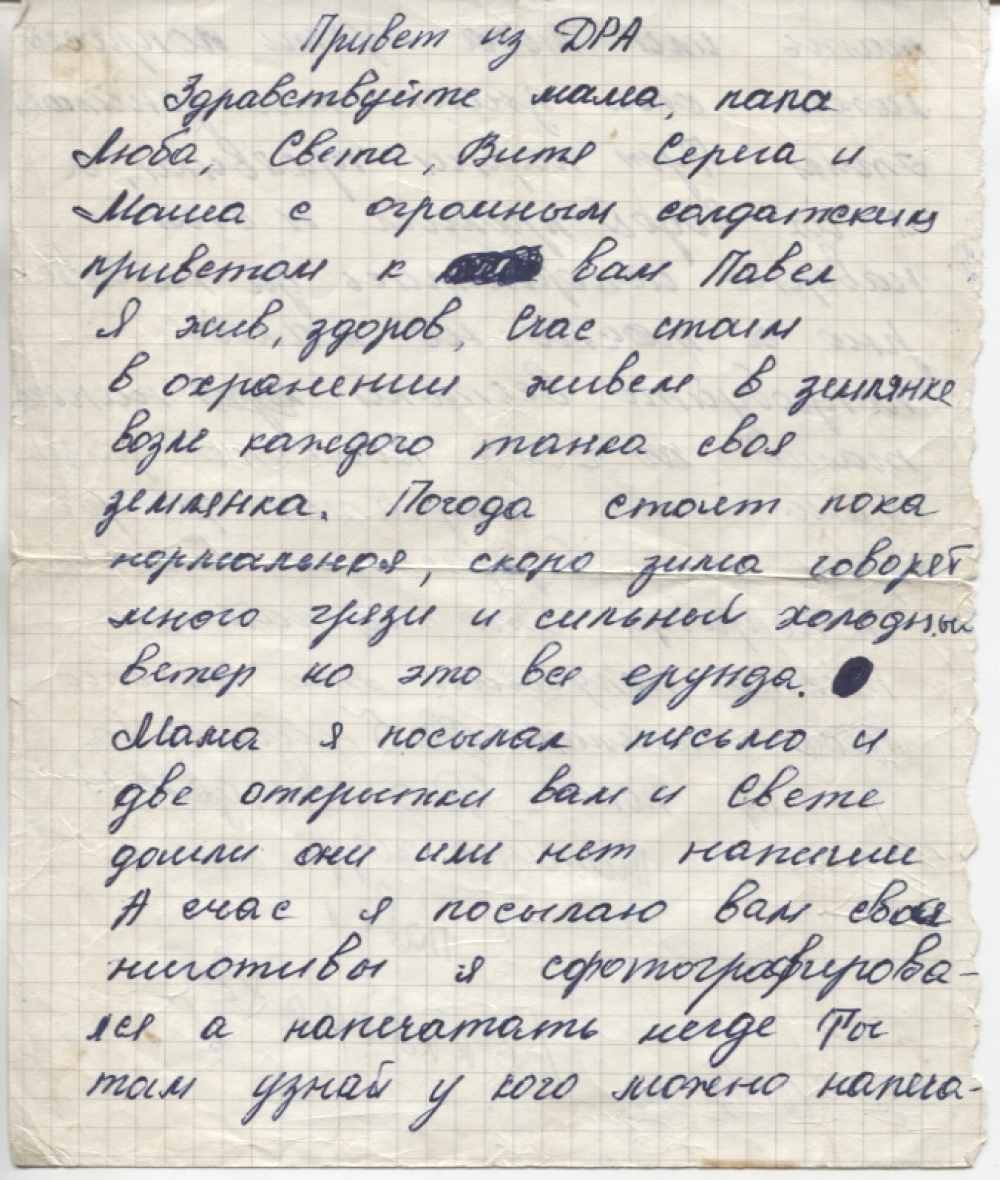 Привет из ДРА
Здравствуйте мама, папа
Люба, Света, Витя Серега и
Маша с огромным солдатским
приветом к вам Павел
Я жив, здоров, Счас стоим
в охранении живем в землянке
возле каждого танка своя
землянка. Погода стоят пока
нормальная, скоро зима говорят
много грязи и сильный холодный
ветер но это все ерунда.
Мама я посылал письмо и
две открытки вам и Свете
дошли они или нет напиши
А счас я посылаю вам свои
ниготивы я сфотографирова-
лся а напечатать негде Ты
там узнай у кого можно напеча-